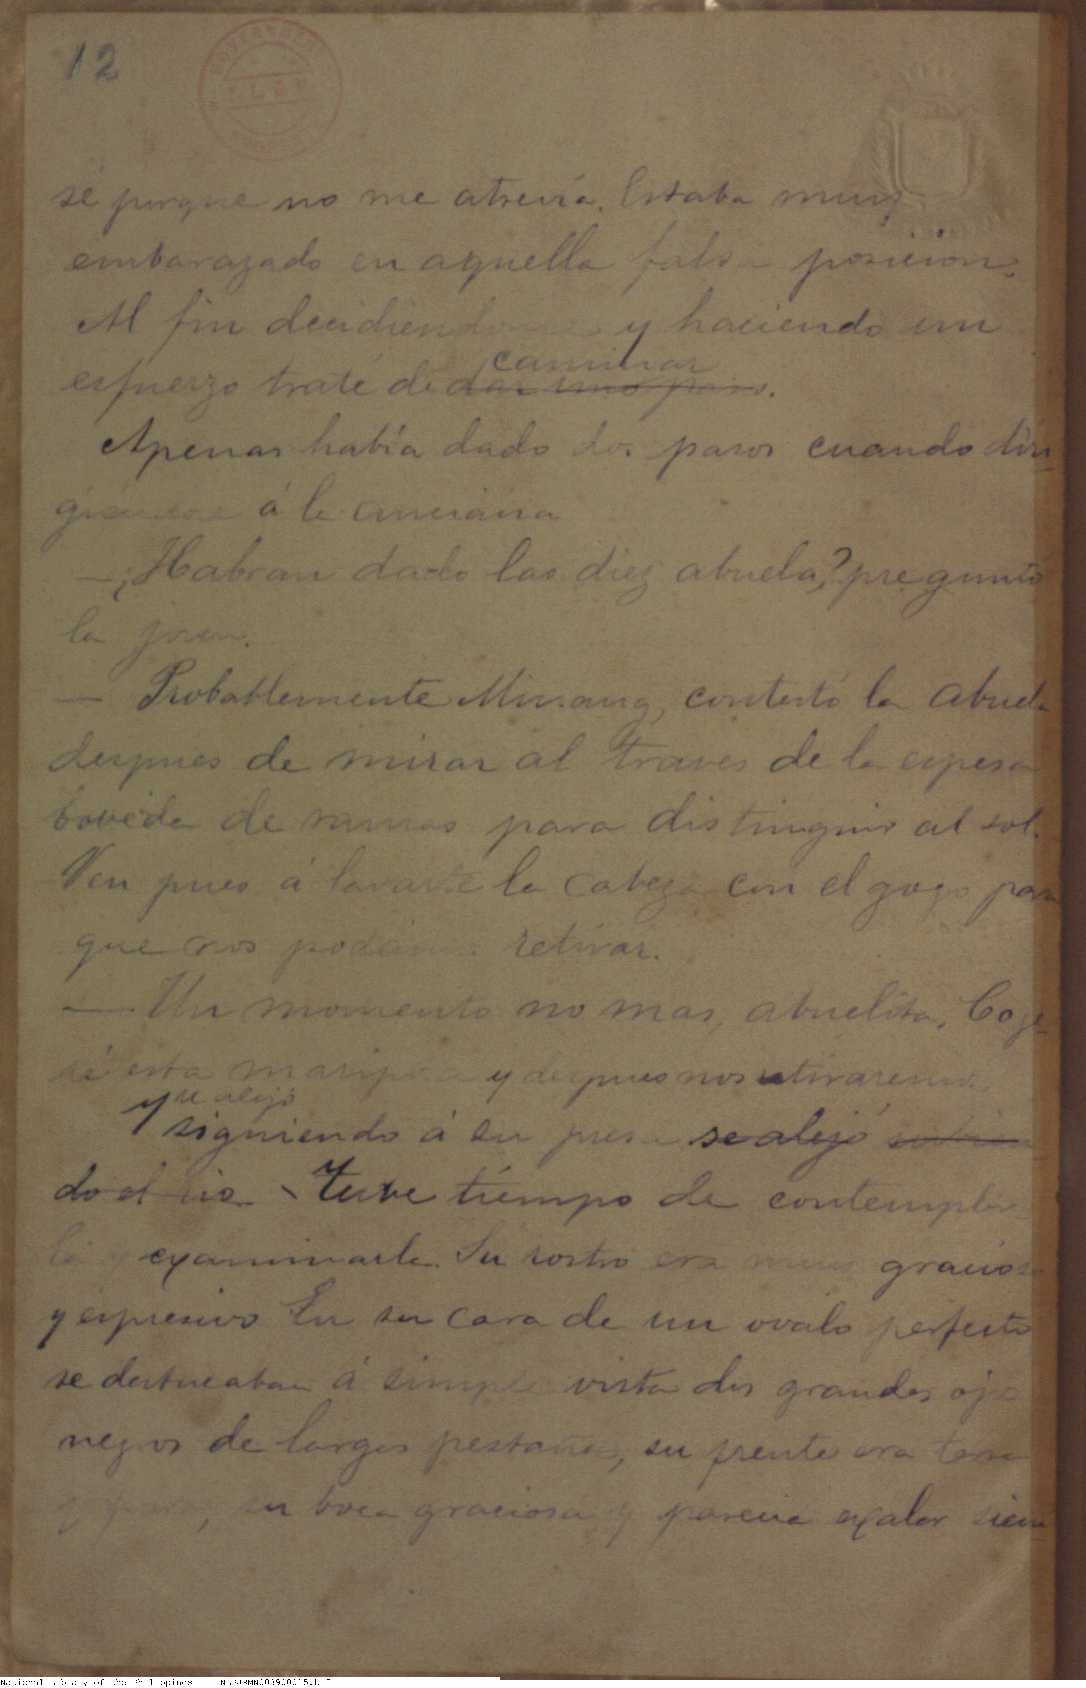 12
sé porque no me atrevía. Estaba muy
embarazado en aquella falsa posicion.
Al fin decidiendome y haciendo un
caminar
esfuerzo traté de dar unos pasos.
Apenas había dado dos pasos cuando diri-
á la anciana
—¿Habran dado las diez abuela? preguntó
la joven.
— Probablemente Minang, contestó la abuela
despues de mirar al traves de la espesa
boveda de ramas para distinguir al sol.
Ven pues á lavarte la cabeza con el gogo para
que nos podamos retirar.
— Un momento no mas, abuelita. Coje-
ré esta mariposa y despues nos retiraremos
y se alejó
siguiendo á su presa se alejó
do el rio. Tuve tiempo de contemplar-
la y examinarla. Su rostro era muy gracioso
y espresivo En su cara de un ovalo perfecto
se destacaban á simple vista dos grandes ojos
negros de largas pestañas, su frente era tersa
y pura, su boca graciosa y parecia exalar siem-
National Library of the Philippines